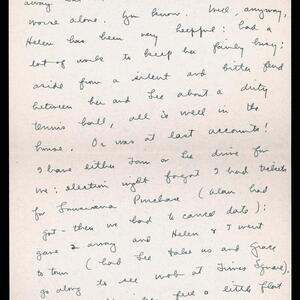 away
worse alone. You know. Well, anyway,
Helen has been very helpful: had a
lot of work to keep her fairly busy;
aside from a silent and bitter feud
between her and Lee about a dirty
tennis ball, all is well in the
house. Or was at last accounts!
I have either Sam or Lee drive for
me: election night forgot I had tickets
for Louisiana Purchase (Alan had
got - then we had to cancel date):
gave 2 away and Helen & I went
to town (had Lee take us and Grace
go along to see mob at Times Square).
feel a little flat